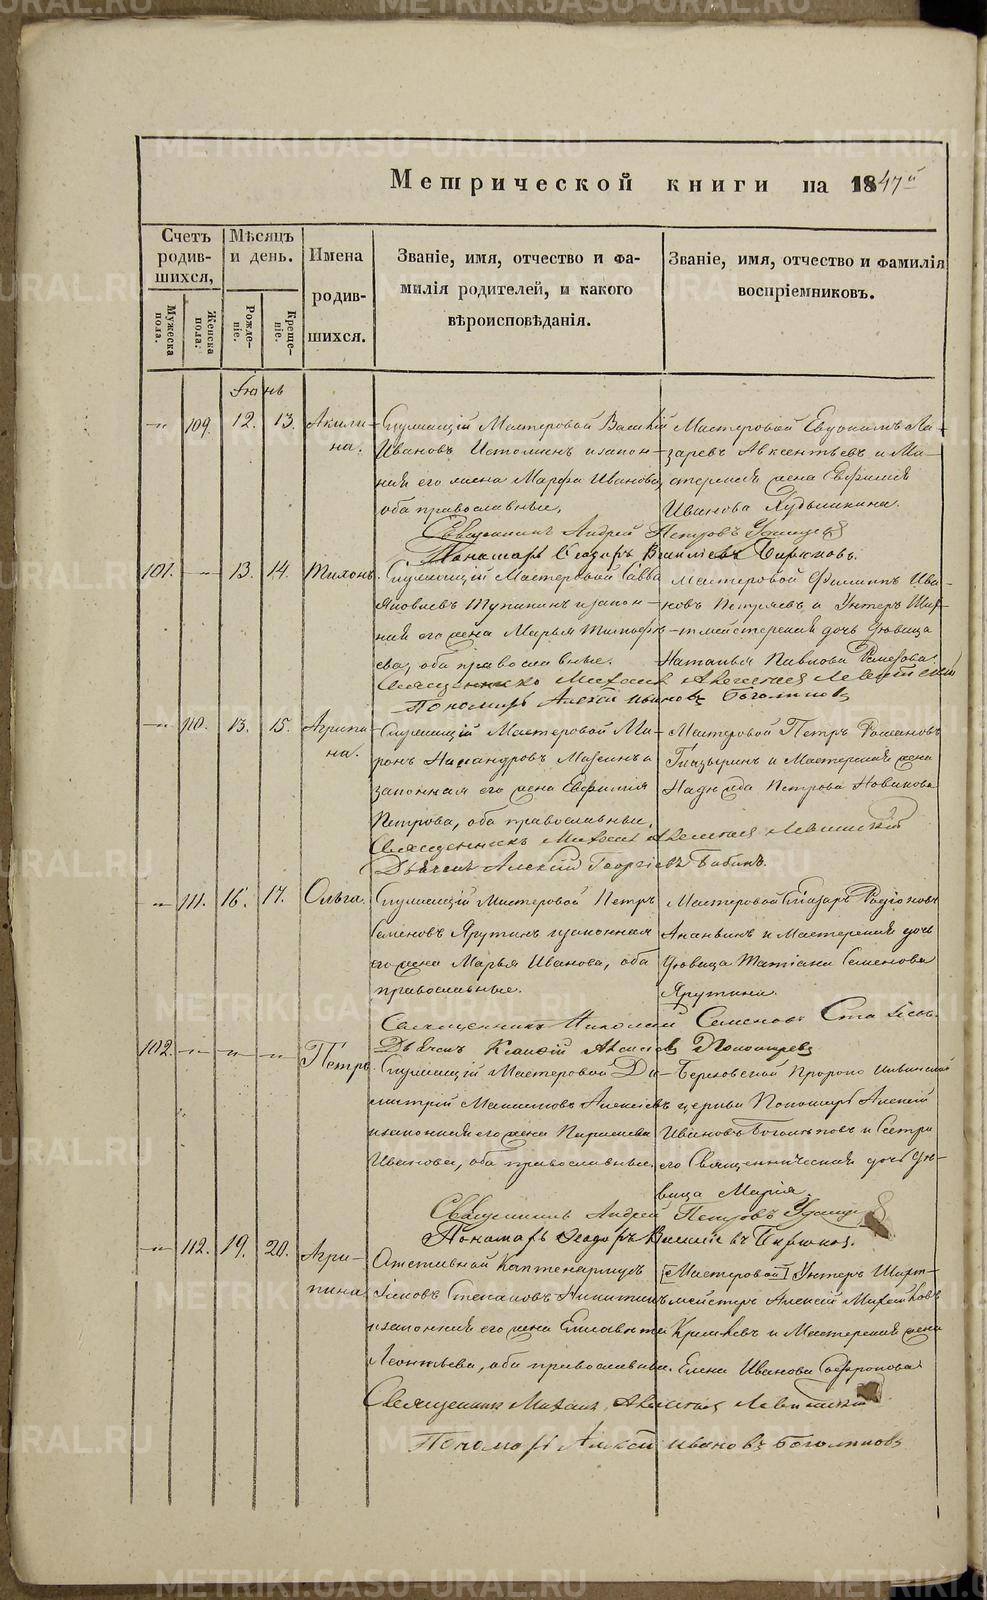 METRIKI.GASO-URAL.RU
Метрической книги на 1847й
Счетъ родив-шихся,
Мѣсяцъ и день.
Имена родив-шихся.
Званіе, имя, отчество и фа-
милія родителей, и какого
вѣроисповѣданія.
Званіе, имя, отчество и фамилія
воспріемниковъ.
Мужеска пола.
Женска пола.
Рожде-ніе.
Креще-ніе.
Іюнь
109. 12. 13. Акили-на.
Служащій Мастеровой Василій
Ивановъ Истоминъ и закон-
ная его жена Марфа Иванова,
оба православные.
Мастеровой Евдокимъ Ла-
заревъ Авксентьевъ и Ма-
стерская жена Евфимія
Иванова
Священникъ Андрей Петровъ
Пономарь Ѳеодоръ Василіевъ Бирюковъ.
101. 13. 14. Тихонъ.
Служащій Мастеровой Савва
Яковлевъ Тупикинъ и закон-
ная его жена Марья Тимофѣ-
ева, оба православные.
Мастеровой Филиппъ Ива-
новъ Петряевъ и Унтеръ Шах-
тмейстерская дочь дѣвица
Наталья Павлова
Священникъ Михаилъ Алексѣевъ Левитскій
Пономарь Алексѣй Ивановъ Боголюбовъ
110. 13. 15. Агрипи-на.
Служащій Мастеровой Ми-
ронъ Никандровъ и
законная его жена Евфимія
Петрова, оба православные.
Мастеровой Петръ Романовъ
Глазыринъ и Мастерская жена
Надежда Петрова Новикова
Священникъ Михаилъ Алексѣевъ Левитскій
Дьячекъ Алексѣй Георгіевъ Бабинъ.
111. 16. 17. Ольга.
Служащій Мастеровой Петръ
Семеновъ Ярутинъ и законная
его жена Марья Иванова, оба
православные.
Мастеровой Елізаръ Родіоновъ
Ананьинъ и Мастерская дочь
дѣвица Татіана Семенова
Ярутина.
Священникъ Николай Семеновъ
Дьячекъ Алексѣевъ Пономаревъ
102. Петръ.
Служащій Мастеровой Ди-
митрій Максимовъ Алексѣевъ
и законная его жена Парасковья
Иванова, оба православные.
Березовской Пророко Ильинской
церкви Пономарь Алексѣй
Ивановъ Боголюбовъ и Сестра
его Священническая дочь дѣ-
вица Марія.
Священникъ Андрей Петровъ
Пономарь Ѳеодоръ Василіевъ Бирюковъ.
112. 19. 20. Агри-пина
Отставной Каптенармусъ
Степановъ Никитинъ
и законная его жена Елисавета
Леонтьева, оба православные.
[Мастеровой] Унтеръ Шахт-
мейстеръ Алексѣй Михайловъ
и Мастерская жена
Елена Иванова Сафронова
Священникъ Михаилъ Алексѣевъ Левитскій
Пономарь Алексѣй Ивановъ Боголюбовъ